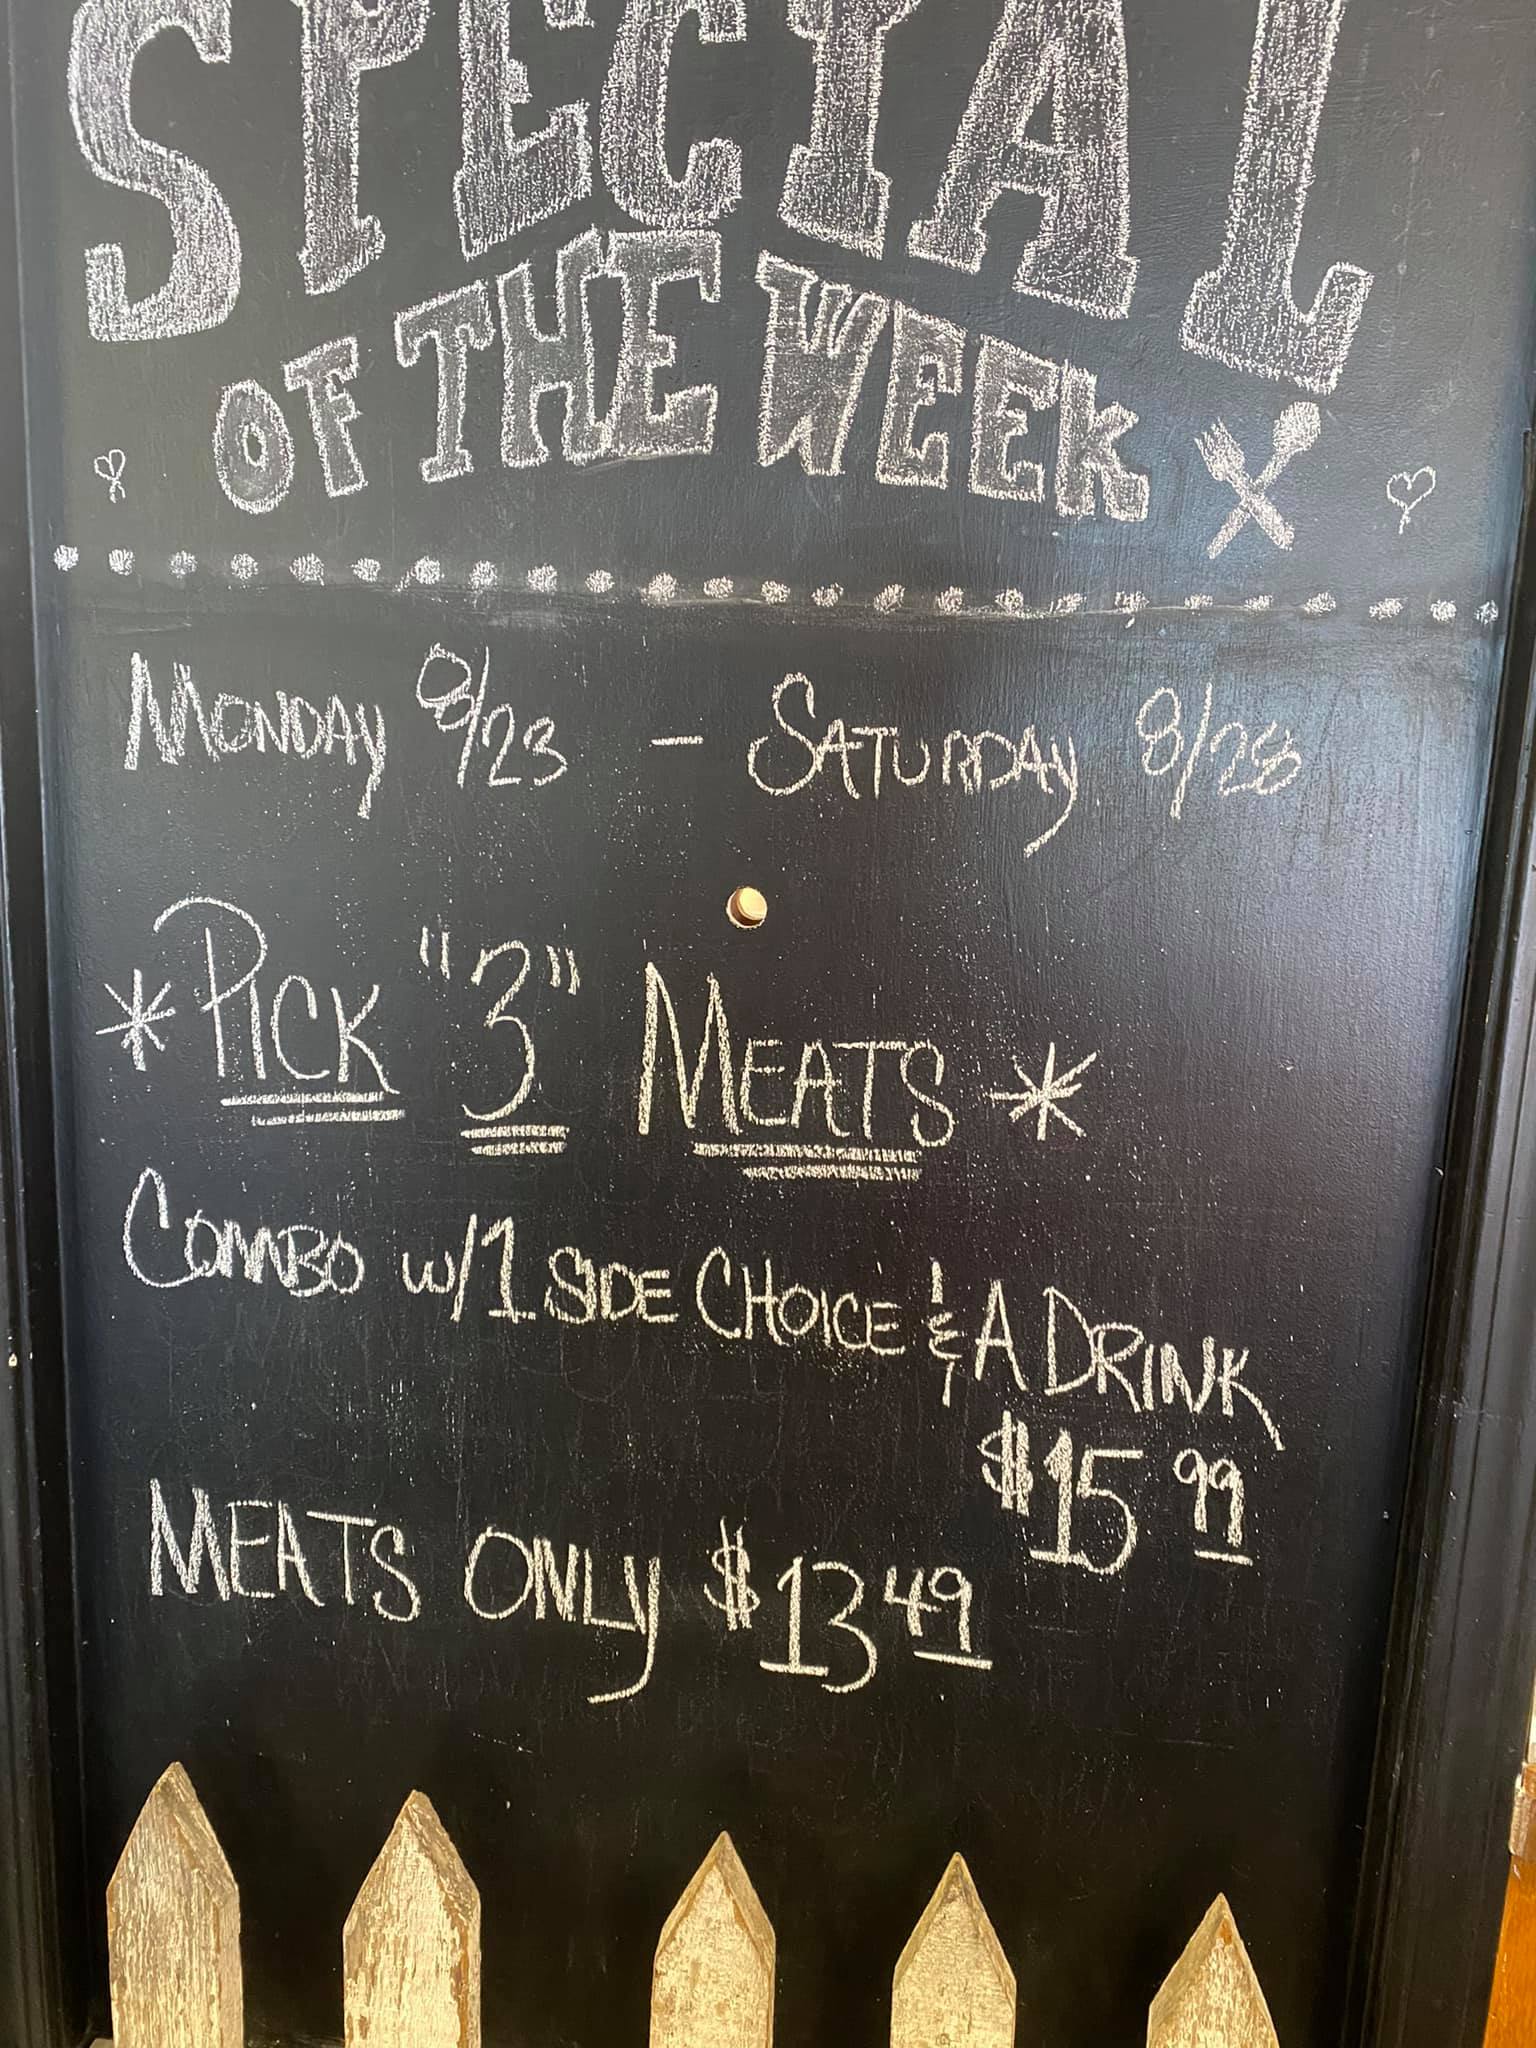 SPECIAL
OF THE WEEK
MONDAY 8/23 - SATURDAY 8/28
* PICK "3" MEATS *
COMBO W/1 SIDE CHOICE & A DRINK
$15 99
MEATS ONLY $13 49